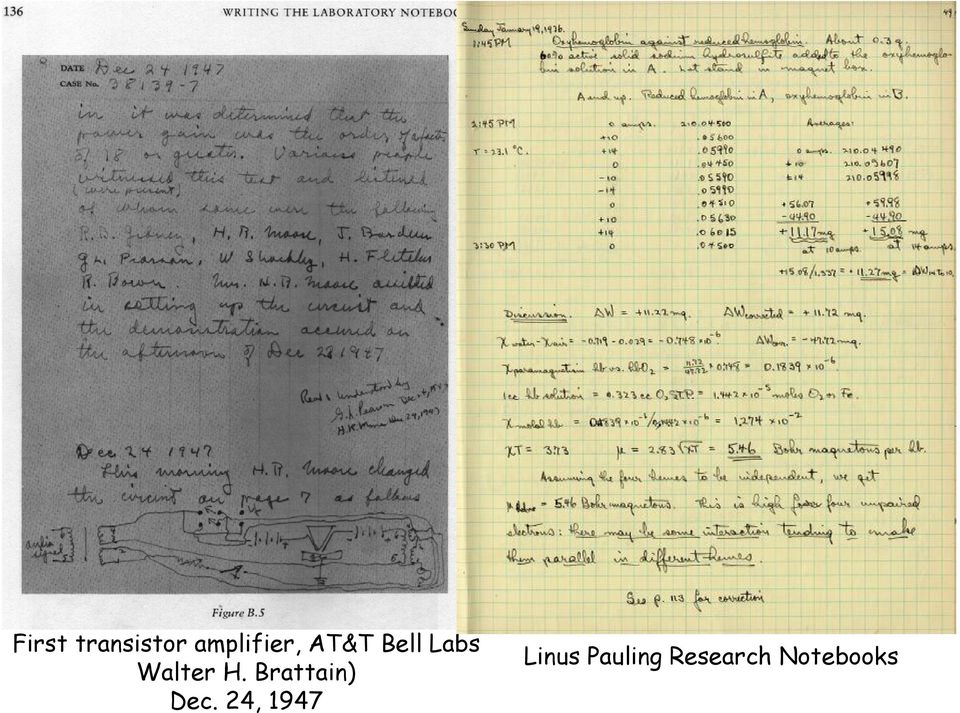 136
WRITING THE LABORATORY NOTEBOO
DATE Dec 24 1947
CASE No. 38139-7
in it was determined that the
power gain was the order of
of 18 or greater. Various people
witnessed this test and listened
(were present)
of whom some were the following
R.B. Gibney, H.R. Moore, J. Bardeen
G.L. Pearson, W Shockley, H. Fletcher
R. Bown. Mr. H.R. Moore assisted
in setting up the circuit and
the demonstration occured on
the afternoon of Dec 23 1947
Read & understood by
G.L. Pearson Dec 24, 1947
H.R. Moore Dec 24, 1947
Dec 24 1947
This morning H.R. Moore changed
the circuit on page 7 as follows
audio
signal
Figure B.5
First transistor amplifier, AT&T Bell Labs
Walter H. Brattain)
Dec. 24, 1947
Sunday January 19, 1936.
49
1:45 PM Oxyhemoglobin against reduced hemoglobin. About 0.3 g.
60% active solid sodium hydrosulfite added to the oxyhemoglo-
bin solution in A. Let stand in magnet box.
A end up. Reduced hemoglobin in A, oxyhemoglobin in B.
2:45 PM 0 amps. 210.04500 Averages:
+10 .05600
T = 23.1 °C. +14 .05990 0 amps. 210.04490
0 .04450 ±10 210.05607
-10 .05590 ±14 210.05998
-14 .05990
0 .04510 +56.07 +59.98
+10 .05630 -44.90 -44.90
+14 .06015 +11.17 mg +15.08 mg
3:30 PM 0 .04500 at 10 amps. at 14 amps.
+15.08/1.337 = +11.27 mg = ΔW
Discussion. ΔW = +11.22 mg. ΔWcorrected = +11.72 mg.
χ water - χ air = -0.719 - 0.029 = -0.748 × 10⁻⁶ = -47.72 mg.
χ paramagnetism hb vs. hbO₂ = 11.72/47.72 × 0.748 = 0.1839 × 10⁻⁶.
1 cc hb solution = 0.323 cc O₂ S.T.P. = 1.442 × 10⁻⁵ moles O₂ or Fe.
χ molal hb = = 1.274 × 10⁻²
χT = 3.73 μ = 2.83 √χT = 5.46 Bohr magnetons per hb.
Assuming the four hemes to be independent, we get
μ heme = 5.46 Bohr magnetons. This is high for four unpaired
electrons: there may be some interaction tending to make
them parallel in different hemes.
See p. 113 for correction
Linus Pauling Research Notebooks